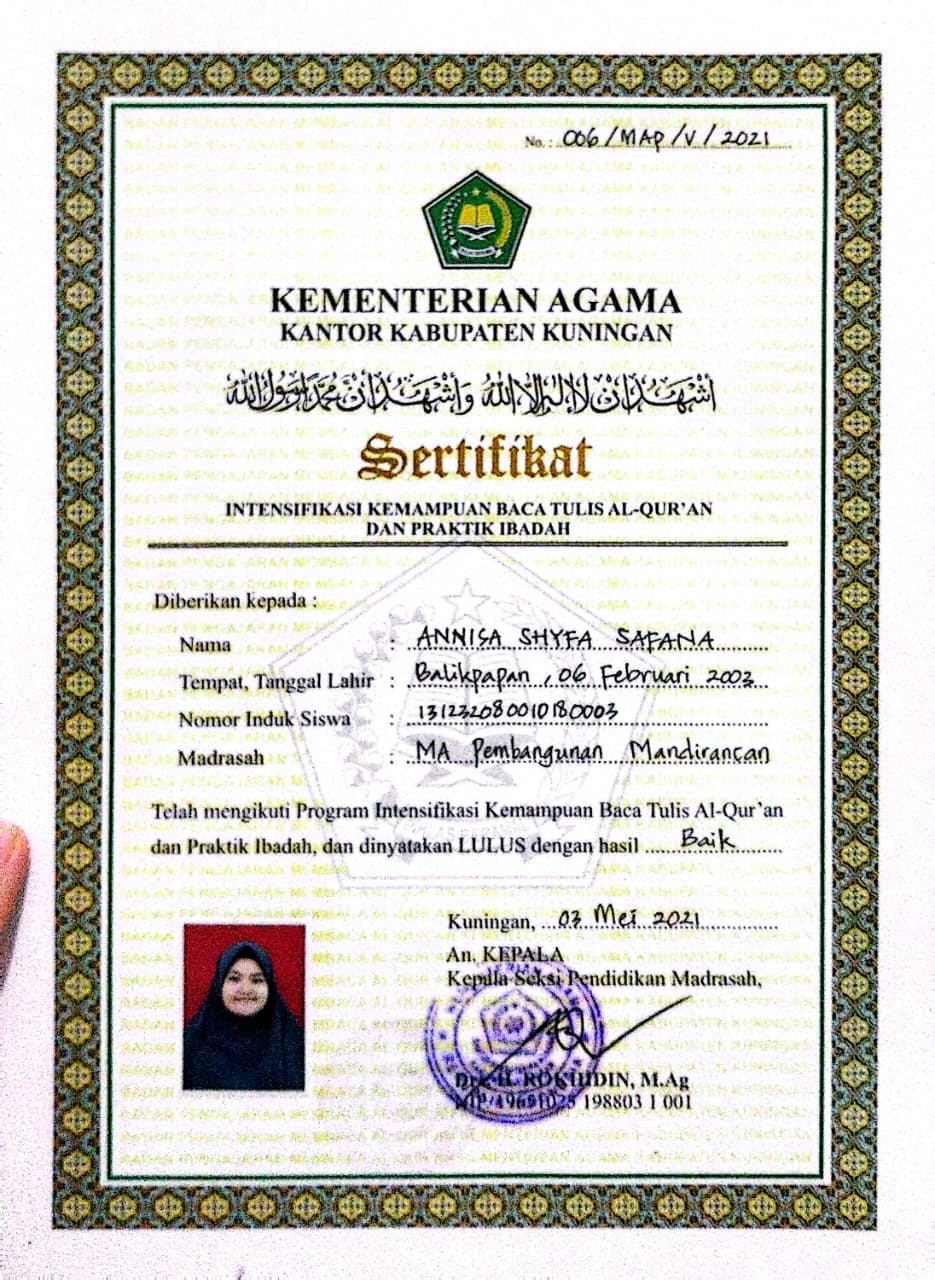 No. : 006/MAP/V/2021
KEMENTERIAN AGAMA
KANTOR KABUPATEN KUNINGAN
أشهد أن لا إله إلا الله وأشهد أن محمد رسول الله
Sertifikat
INTENSIFIKASI KEMAMPUAN BACA TULIS AL-QUR'AN
DAN PRAKTIK IBADAH
Diberikan kepada :
Nama : ANNISA SHYFA SAFANA
Tempat, Tanggal Lahir : Balikpapan, 06 Februari 2003
Nomor Induk Siswa : 131232080010180003
Madrasah : MA Pembangunan Mandirancan
Telah mengikuti Program Intensifikasi Kemampuan Baca Tulis Al-Qur'an
dan Praktik Ibadah, dan dinyatakan LULUS dengan hasil Baik
Kuningan, 03 Mei 2021
An. KEPALA
Kepala Seksi Pendidikan Madrasah,
H. ROKHIDIN, M.Ag
NIP. 19651025 198803 1 001